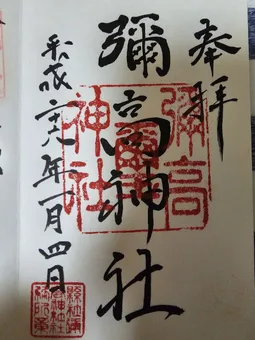 奉拝
彌高神社
平成二十八年一月四日
彌高
神社